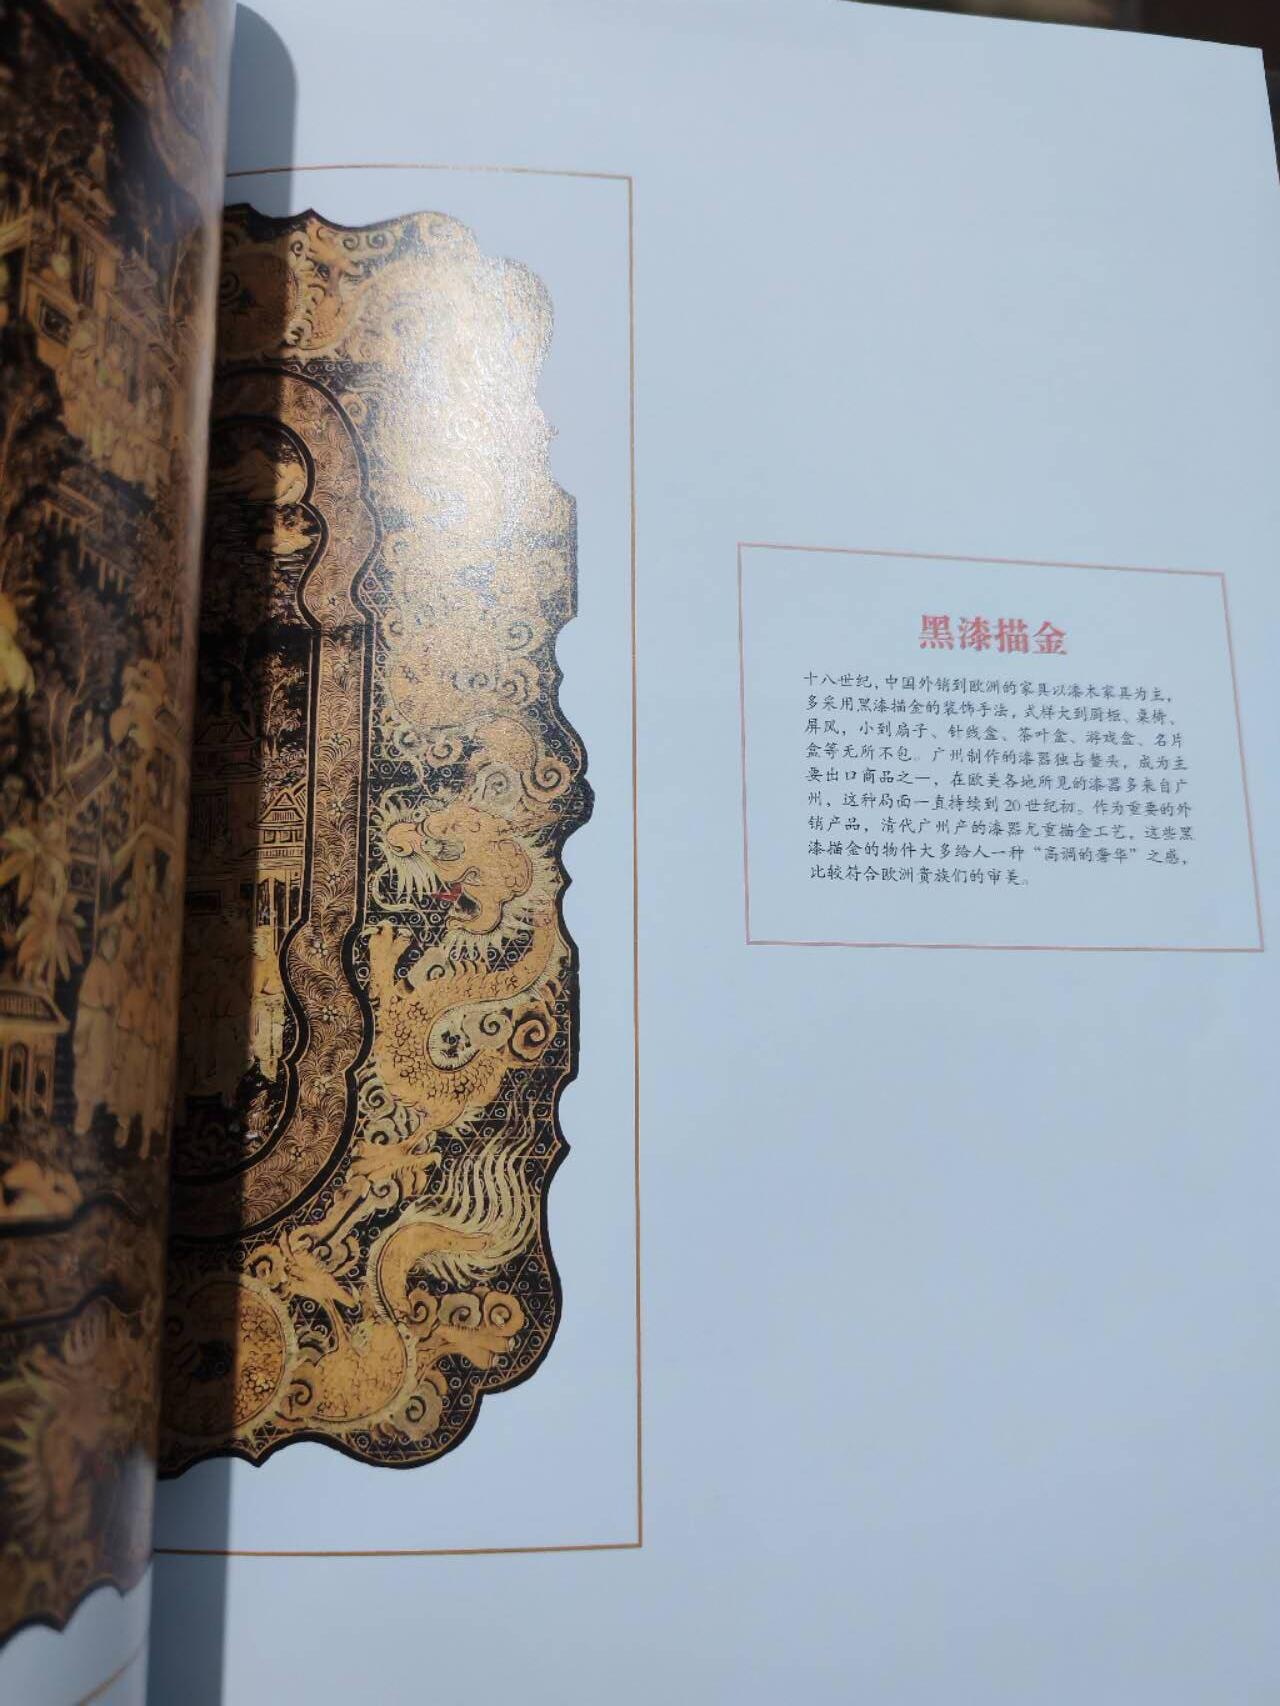 黑漆描金
十八世纪，中国外销到欧洲的家具以漆木家具为主，
多采用黑漆描金的装饰手法，式样大到厨柜、桌椅、
屏风，小到扇子、针线盒、茶叶盒、游戏盒、名片
盒等无所不包。广州制作的漆器独占鳌头，成为主
要出口商品之一，在欧美各地所见的漆器多来自广
州，这种局面一直持续到20世纪初。作为重要的外
销产品，清代广州产的漆器尤重描金工艺，这些黑
漆描金的物件大多给人一种“高调的奢华”之感，
比较符合欧洲贵族们的审美。